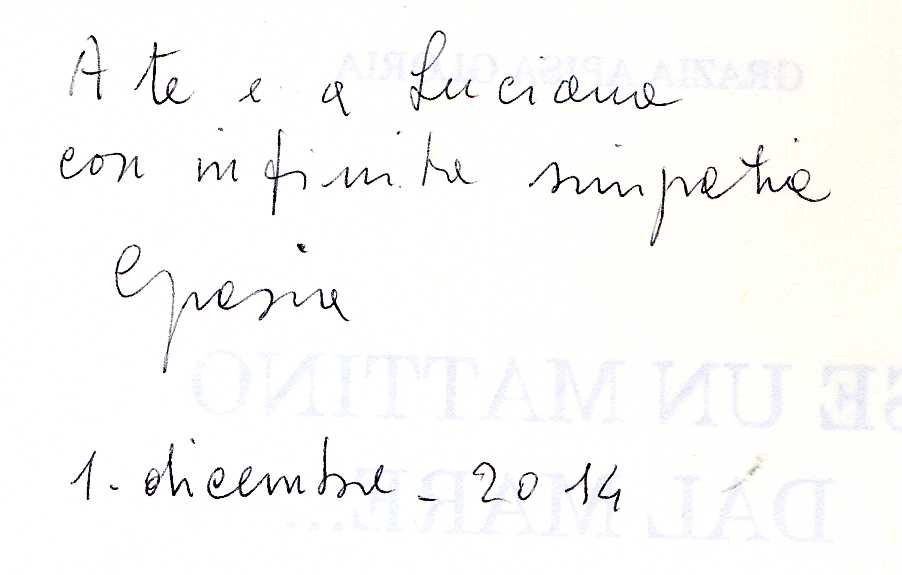 GRAZIA APISA GLORIA
A te e a Luciana
con infinita simpatia
Grazia
SE UN MATTINO
1. dicembre - 2014
DAL MARE...